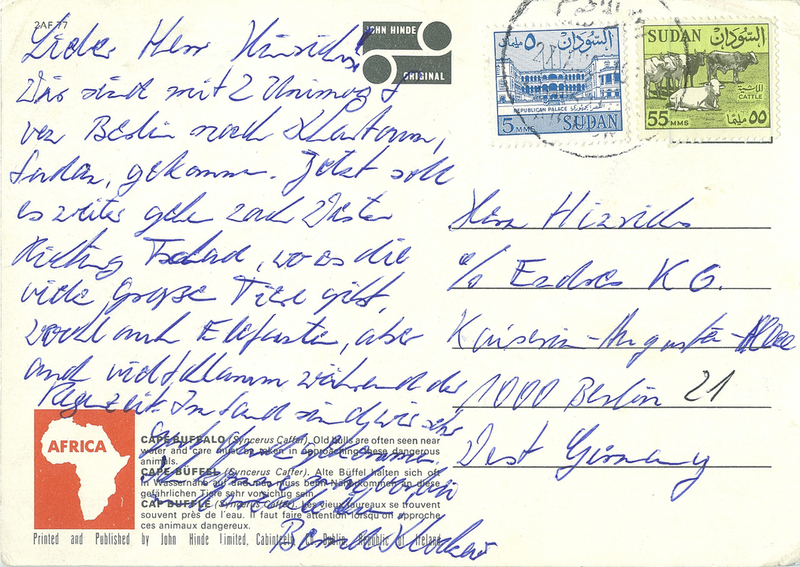 2AF 77
Lieber Herr Hinrichs!
Wir sind mit 2 Unimogs
von Berlin nach Khartoum,
Sudan, gekommen. Jetzt soll
es weiter gehn nach Westen
Richtung Tschad, wo es die
viele große Tiere gibt,
wohl auch Elefanten, aber
auch viel Schlamm während der
Regenzeit. Im Sand sind wir sehr
JOHN HINDE
ORIGINAL
السودان
٥ مليمات
REPUBLICAN PALACE
5 MMS SUDAN
SUDAN السودان
الماشية
CATTLE
55 MMS ٥٥ مليما
Herrn Hinrichs
c/o Endres KG.
Kaiserin-Augusta-Allee
1000 Berlin 21
West Germany
AFRICA
CAPE BUFFALO (Syncerus Caffer). Old bulls are often seen near
water and care must be taken in approaching these dangerous
animals.
CAPE BÜFFEL (Syncerus Caffer). Alte Büffel halten sich oft
in Wassernähe auf und man muss beim Näherkommen an diese
gefährlichen Tiere sehr vorsichtig sein.
CAP BUFFLE (Syncerus Caffer). Les vieux taureaux se trouvent
souvent près de l'eau. Il faut faire attention lorsqu'on approche
ces animaux dangereux.
Printed and Published by John Hinde Limited, Cabinteely, Co. Dublin, Republic of Ireland